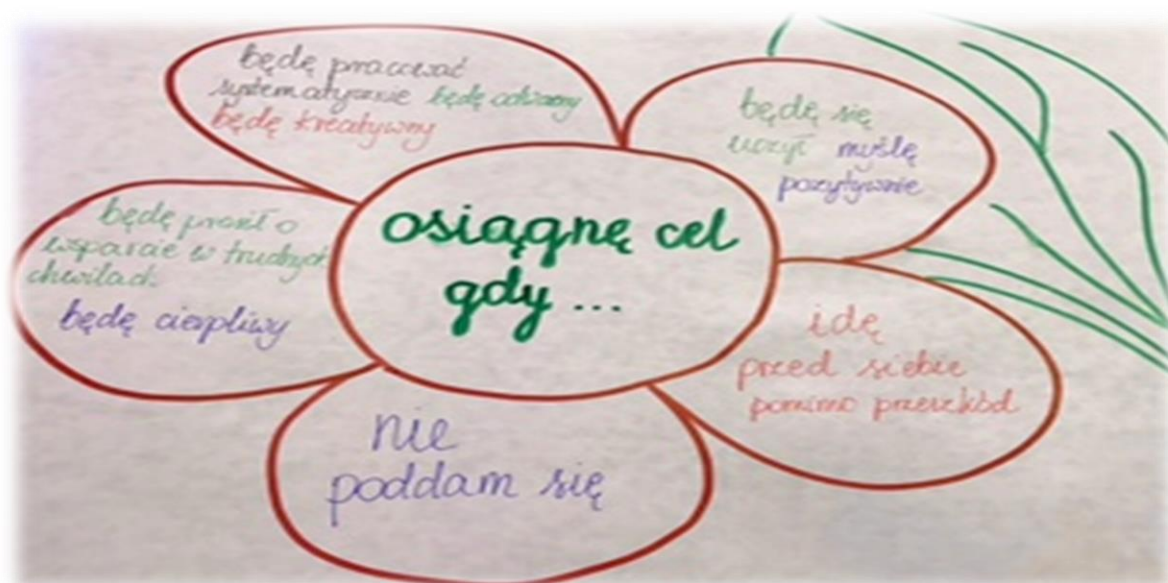 będę pracować
systematycznie będę odważny
będę kreatywny
będę się
uczył myślę
pozytywnie
będę prosił o
wsparcie w trudnych
chwilach
będę cierpliwy
osiągnę cel
gdy ...
idę
przed siebie
pomimo przeszkód
nie
poddam się